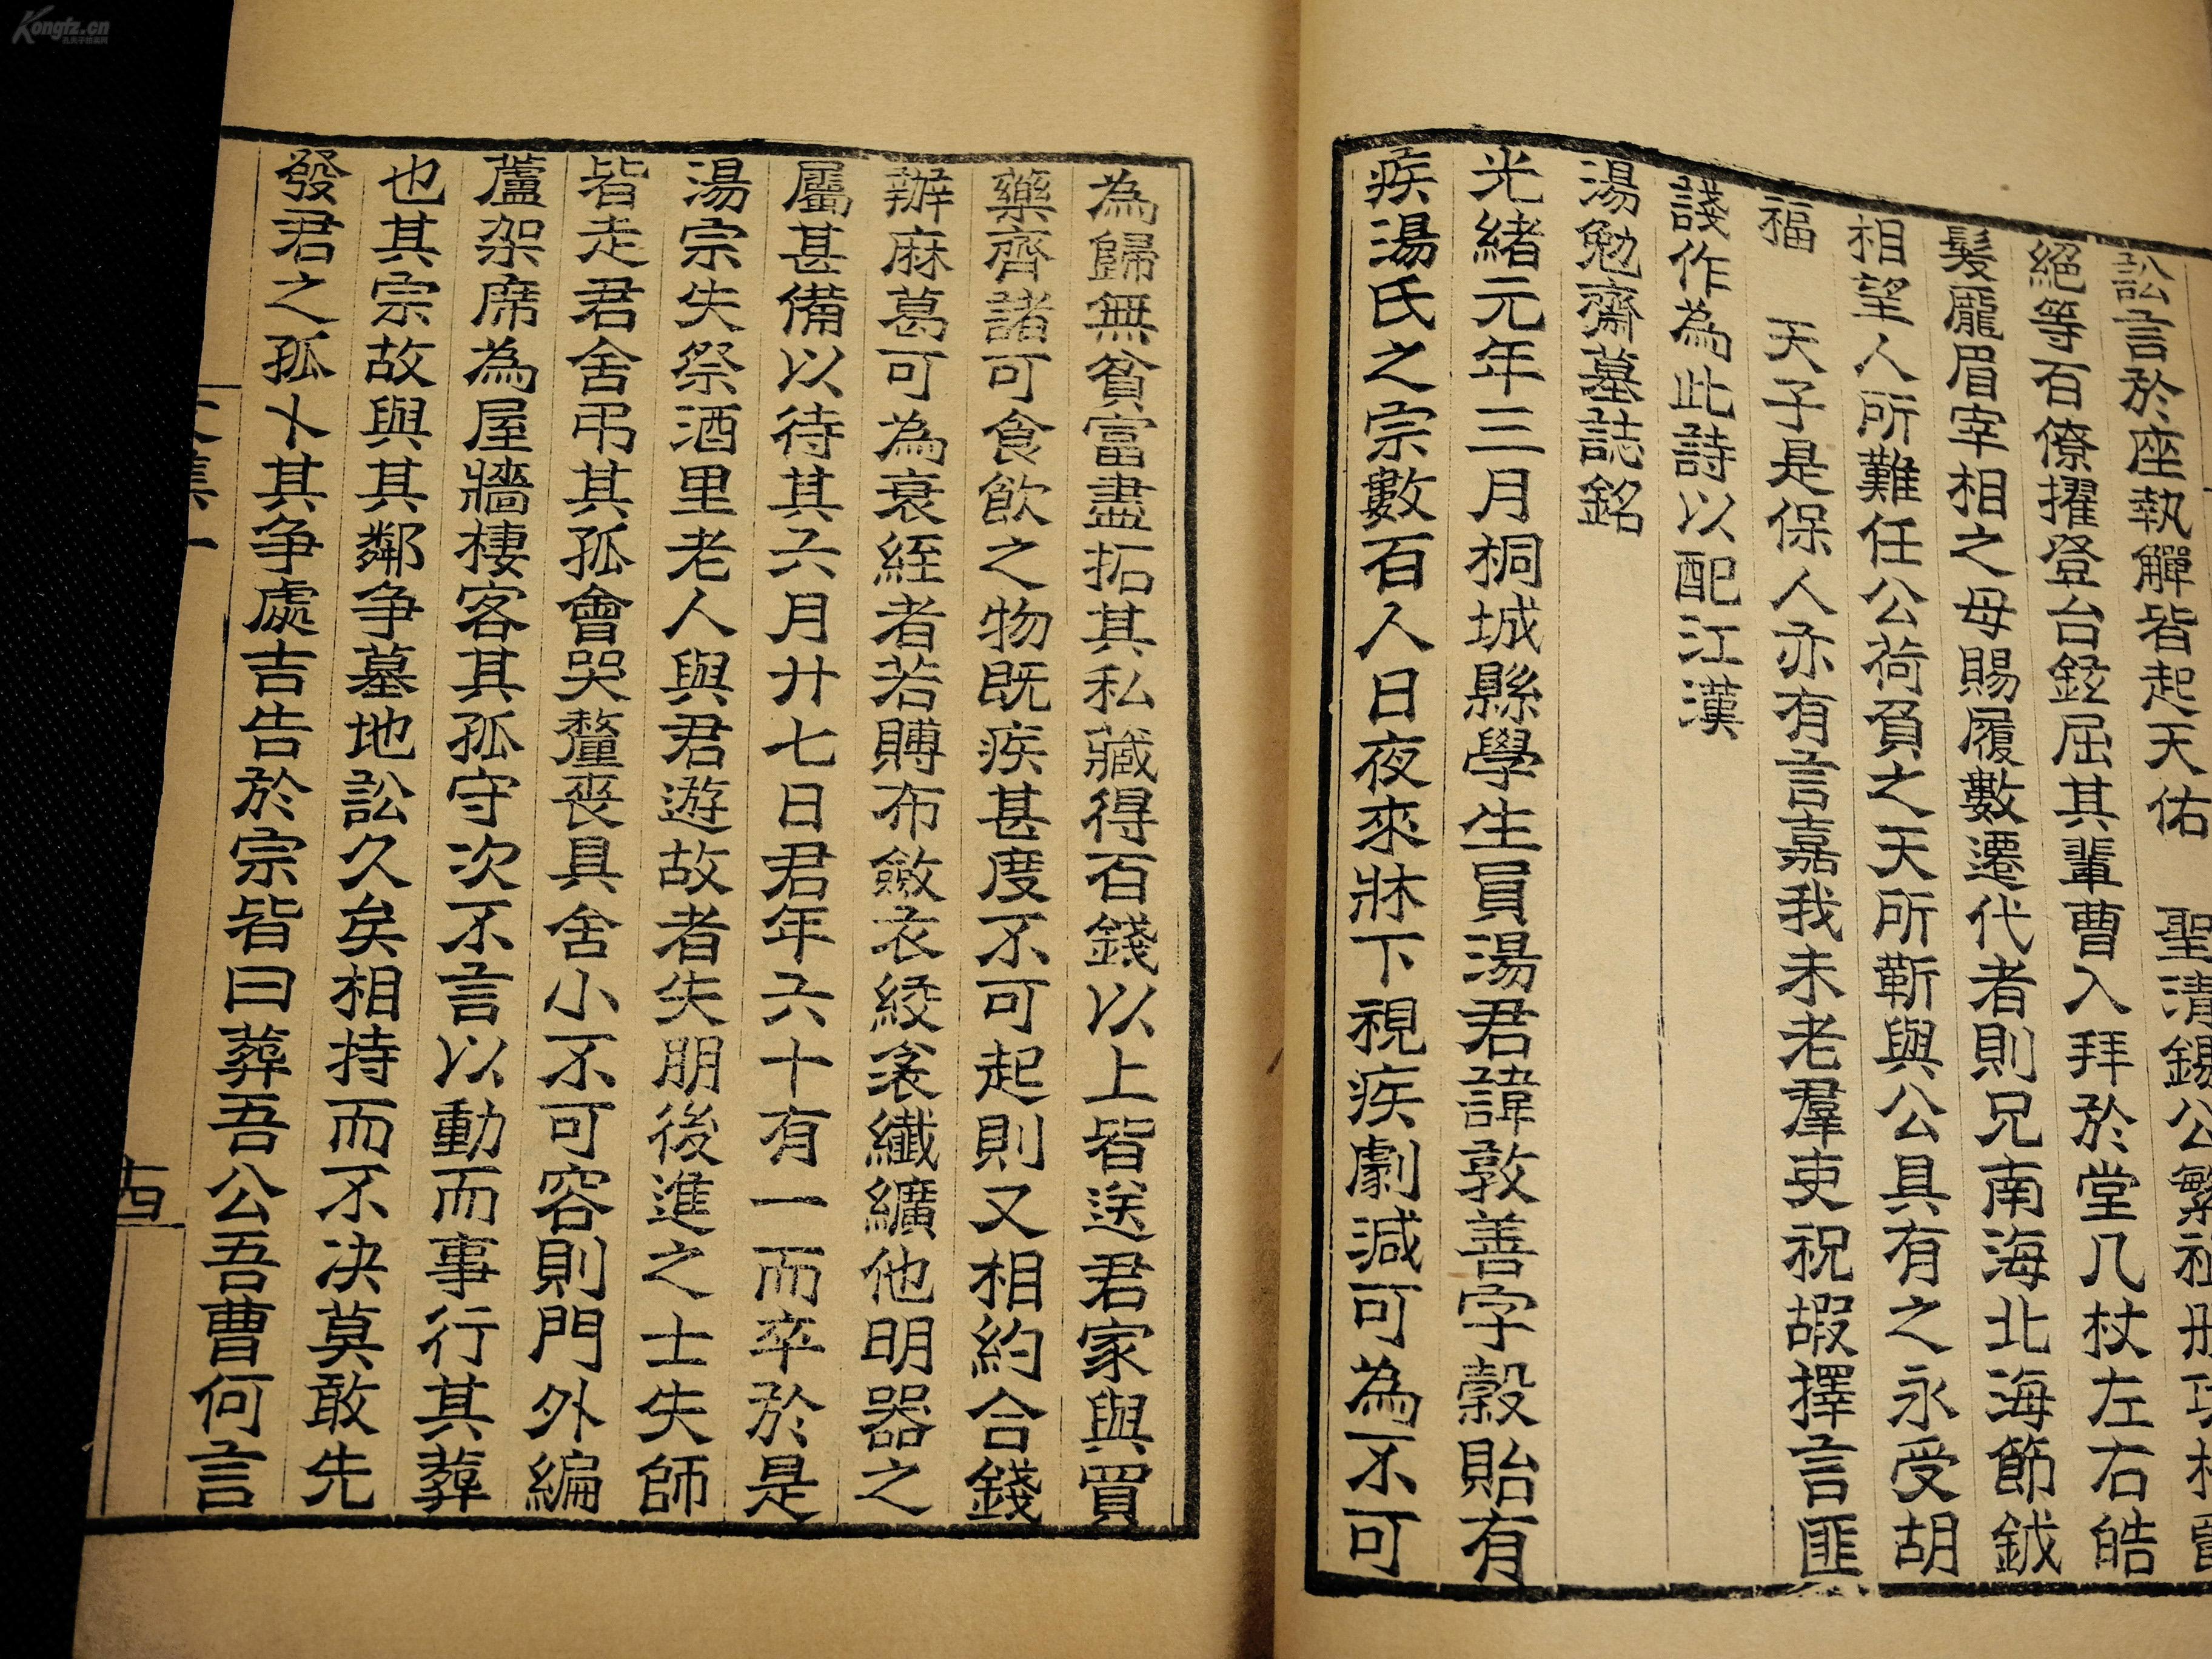 聖清錫公繁祉册功
訟言於座執觶皆起天佑
絕等百僚擢登台鉉屈其輩曹入拜於堂几杖左右皓
髮龐眉宰相之母賜履數遷代者則兄南海北海節鉞
相望人所難任公荷負之天所靳與公具有之永受胡
福　天子是保人亦有言嘉我未老羣吏祝嘏擇言匪
諓作為此詩以配江漢
湯勉齋墓誌銘
光緒元年三月桐城縣學生員湯君諱敦善字穀貽有
疾湯氏之宗數百人日夜來牀下視疾劇減可為不可
為歸無貧富盡拓其私藏得百錢以上皆送君家與買
藥齊諸可食飲之物既疾甚度不可起則又相約合錢
辦麻葛可為衰絰者若賻布斂衣絞衾纖纊他明器之
屬甚備以待其六月廿七日君年六十有一而卒於是
湯宗失祭酒里老人與君遊故者失朋後進之士失師
皆走君舍弔其孤會哭釐喪具舍小不可容則門外編
蘆架席為屋牆棲客其孤守次不言以動而事行其葬
也其宗故與其鄰争墓地訟久矣相持而不決莫敢先
發君之孤卜其争處吉告於宗皆曰葬吾公吾曹何言
文集一
十四
Kongfz.cn